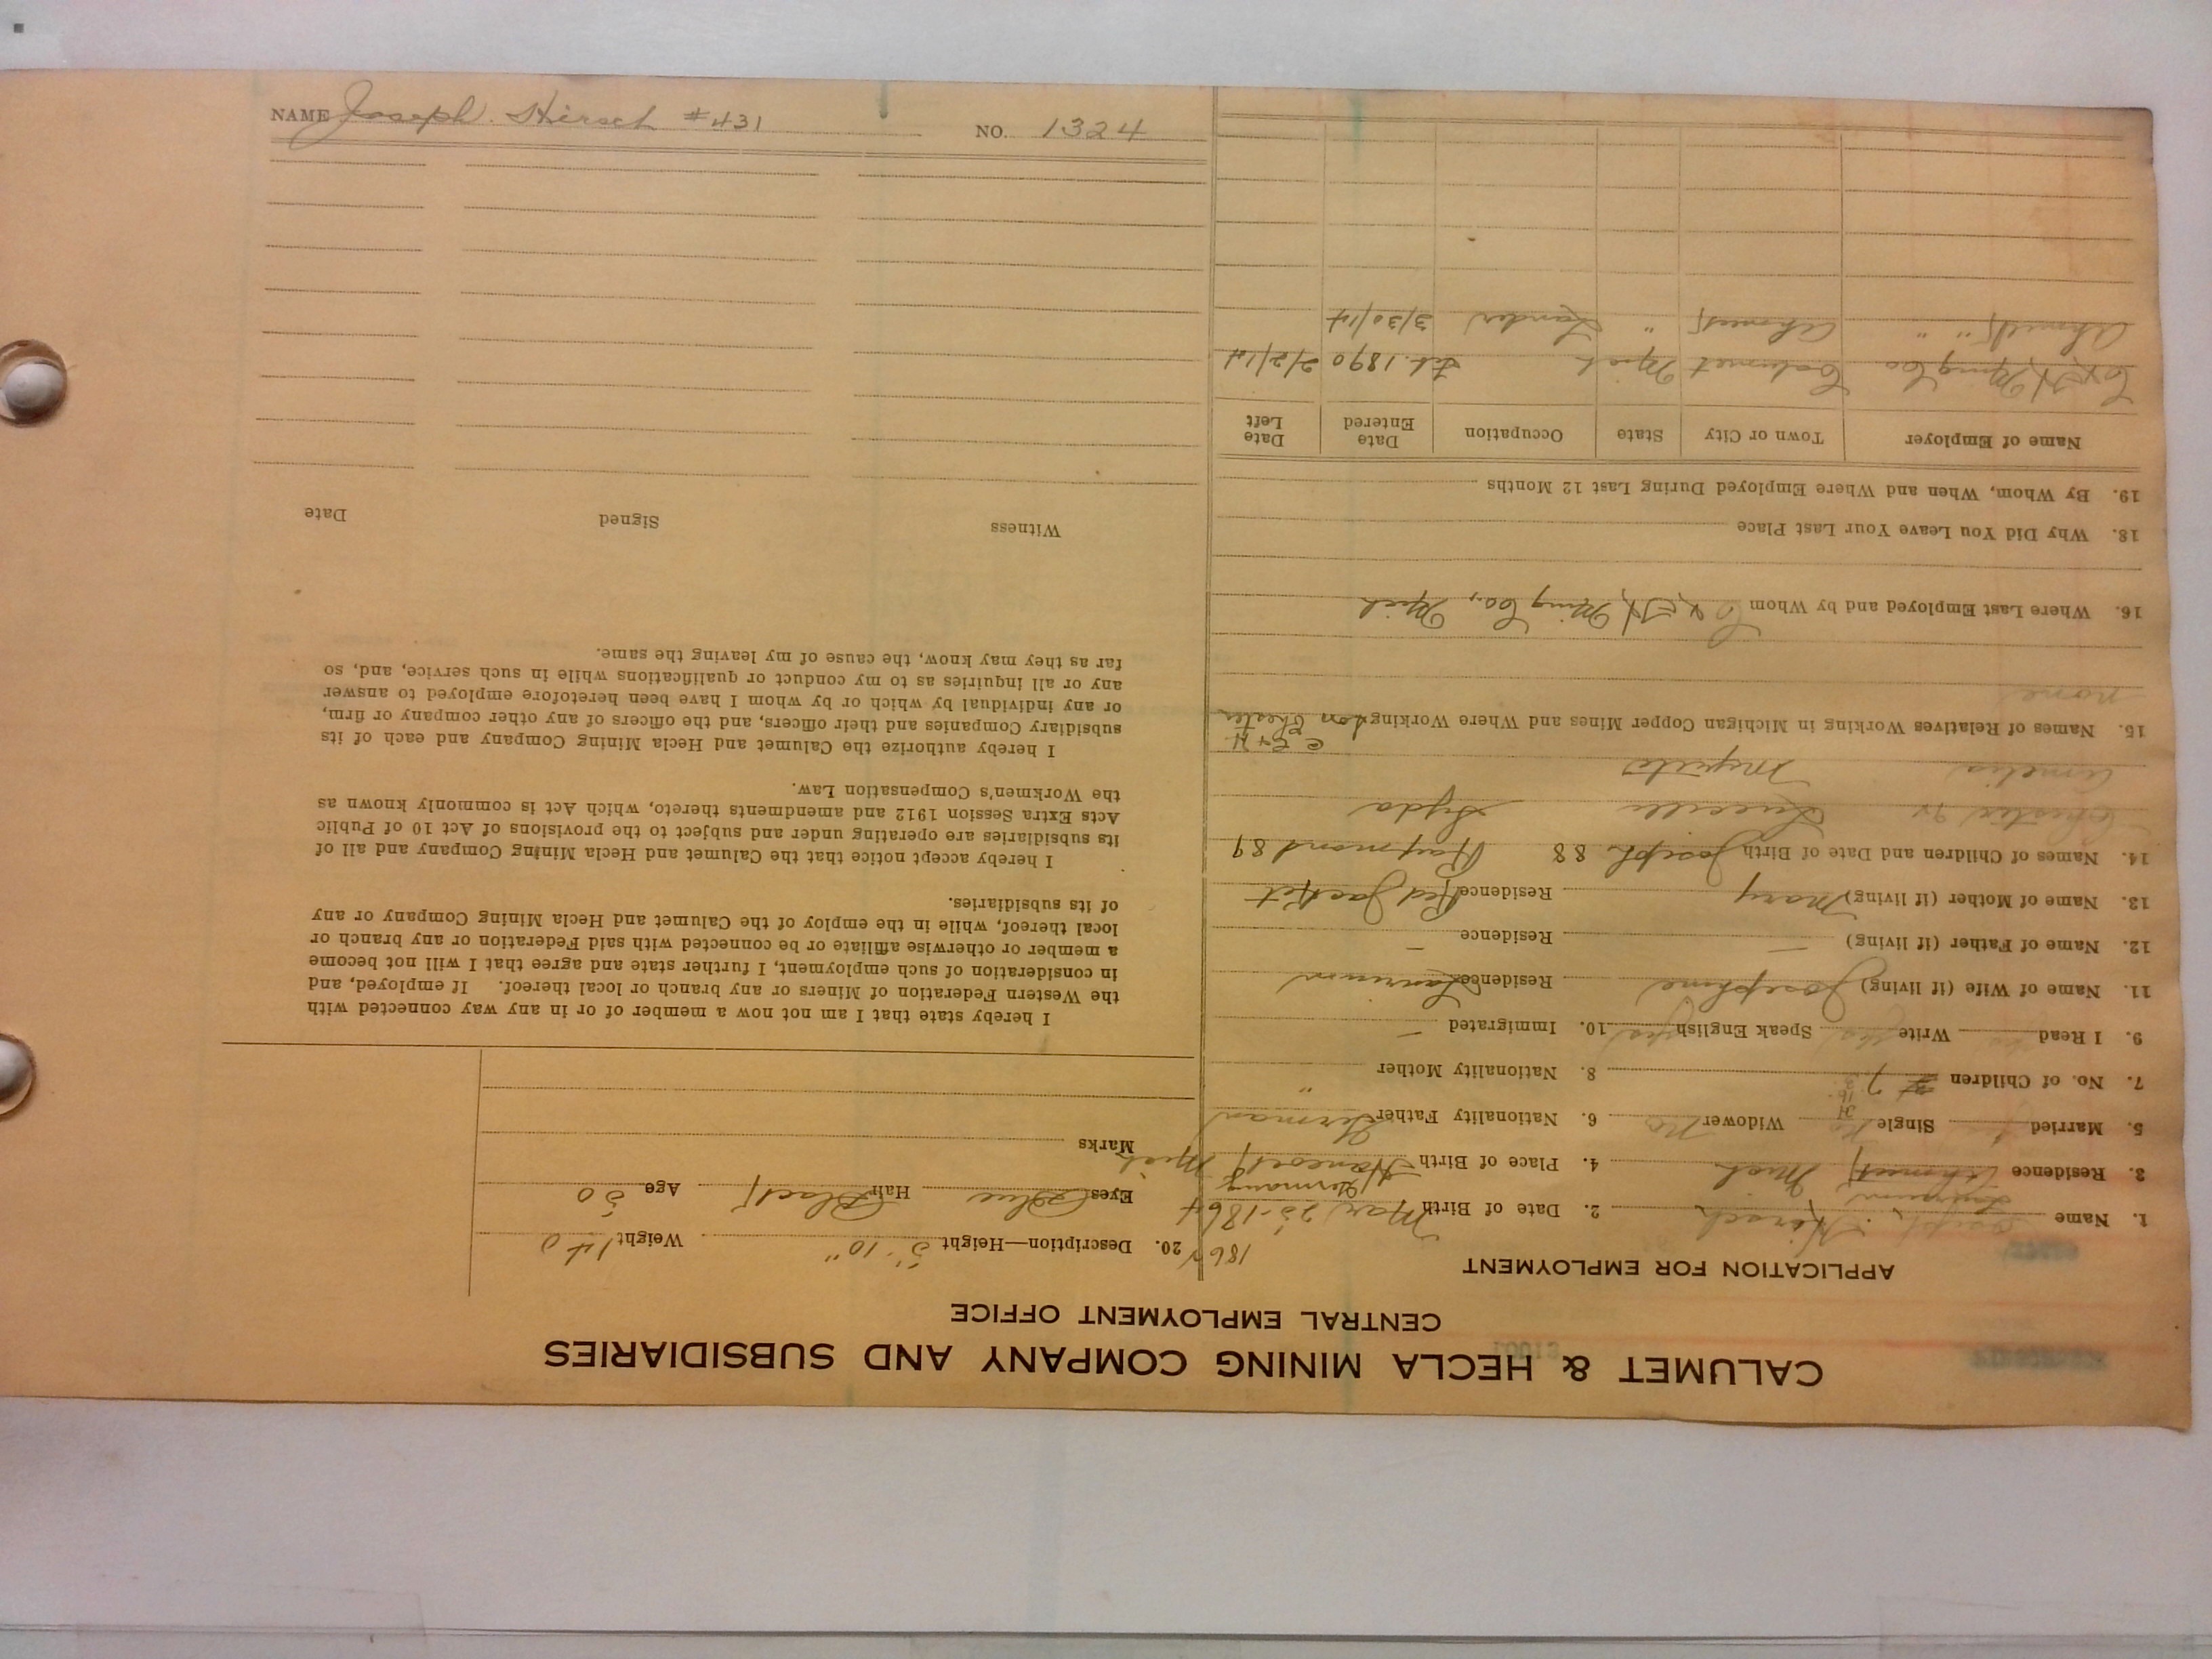 CALUMET & HECLA MINING COMPANY AND SUBSIDIARIES
CENTRAL EMPLOYMENT OFFICE
APPLICATION FOR EMPLOYMENT
1. Name Joseph Hirsch 2. Date of Birth Mar 25-1864 1864
Laurium Germany
3. Residence Ahmeek Mich 4. Place of Birth Hancock Mich
5. Married Single No Widower No 6. Nationality Father German
7. No. of Children 7 8. Nationality Mother "
9. I Read Write Yes Speak English Yes 10. Immigrated –
11. Name of Wife (if living) Josephine Residence Laurium
12. Name of Father (if living) – Residence –
13. Name of Mother (if living) Mary Residence Red Jacket
14. Names of Children and Date of Birth Joseph 88 Raymond 89
Chester 94 Lucille Lyda
Amelia
C & H
15. Names of Relatives Working in Michigan Copper Mines and Where Working son Chester
none
16. Where Last Employed and by Whom C & H Ming Co., Mich
18. Why Did You Leave Your Last Place
19. By Whom, When and Where Employed During Last 12 Months
Name of Employer Town or City State Occupation Date Entered Date Left
C & H Ming Co Calumet Mich Feb. 1890 2/2/14
Ahmeek " " Ahmeek " Lander 3/30/14
20. Description—Height 5' 10" Weight 140
Eyes Blue Hair Black Age 50
Marks
I hereby state that I am not now a member of or in any way connected with
the Western Federation of Miners or any branch or local thereof. If employed, and
in consideration of such employment, I further state and agree that I will not become
a member or otherwise affiliate or be connected with said Federation or any branch or
local thereof, while in the employ of the Calumet and Hecla Mining Company or any
of its subsidiaries.
I hereby accept notice that the Calumet and Hecla Mining Company and all of
its subsidiaries are operating under and subject to the provisions of Act 10 of Public
Acts Extra Session 1912 and amendments thereto, which Act is commonly known as
the Workmen's Compensation Law.
I hereby authorize the Calumet and Hecla Mining Company and each of its
subsidiary Companies and their officers, and the officers of any other company or firm,
or any individual by which or by whom I have been heretofore employed to answer
any or all inquiries as to my conduct or qualifications while in such service, and, so
far as they may know, the cause of my leaving the same.
Witness Signed Date
NAME Joseph. Hirsch #431 NO. 1324